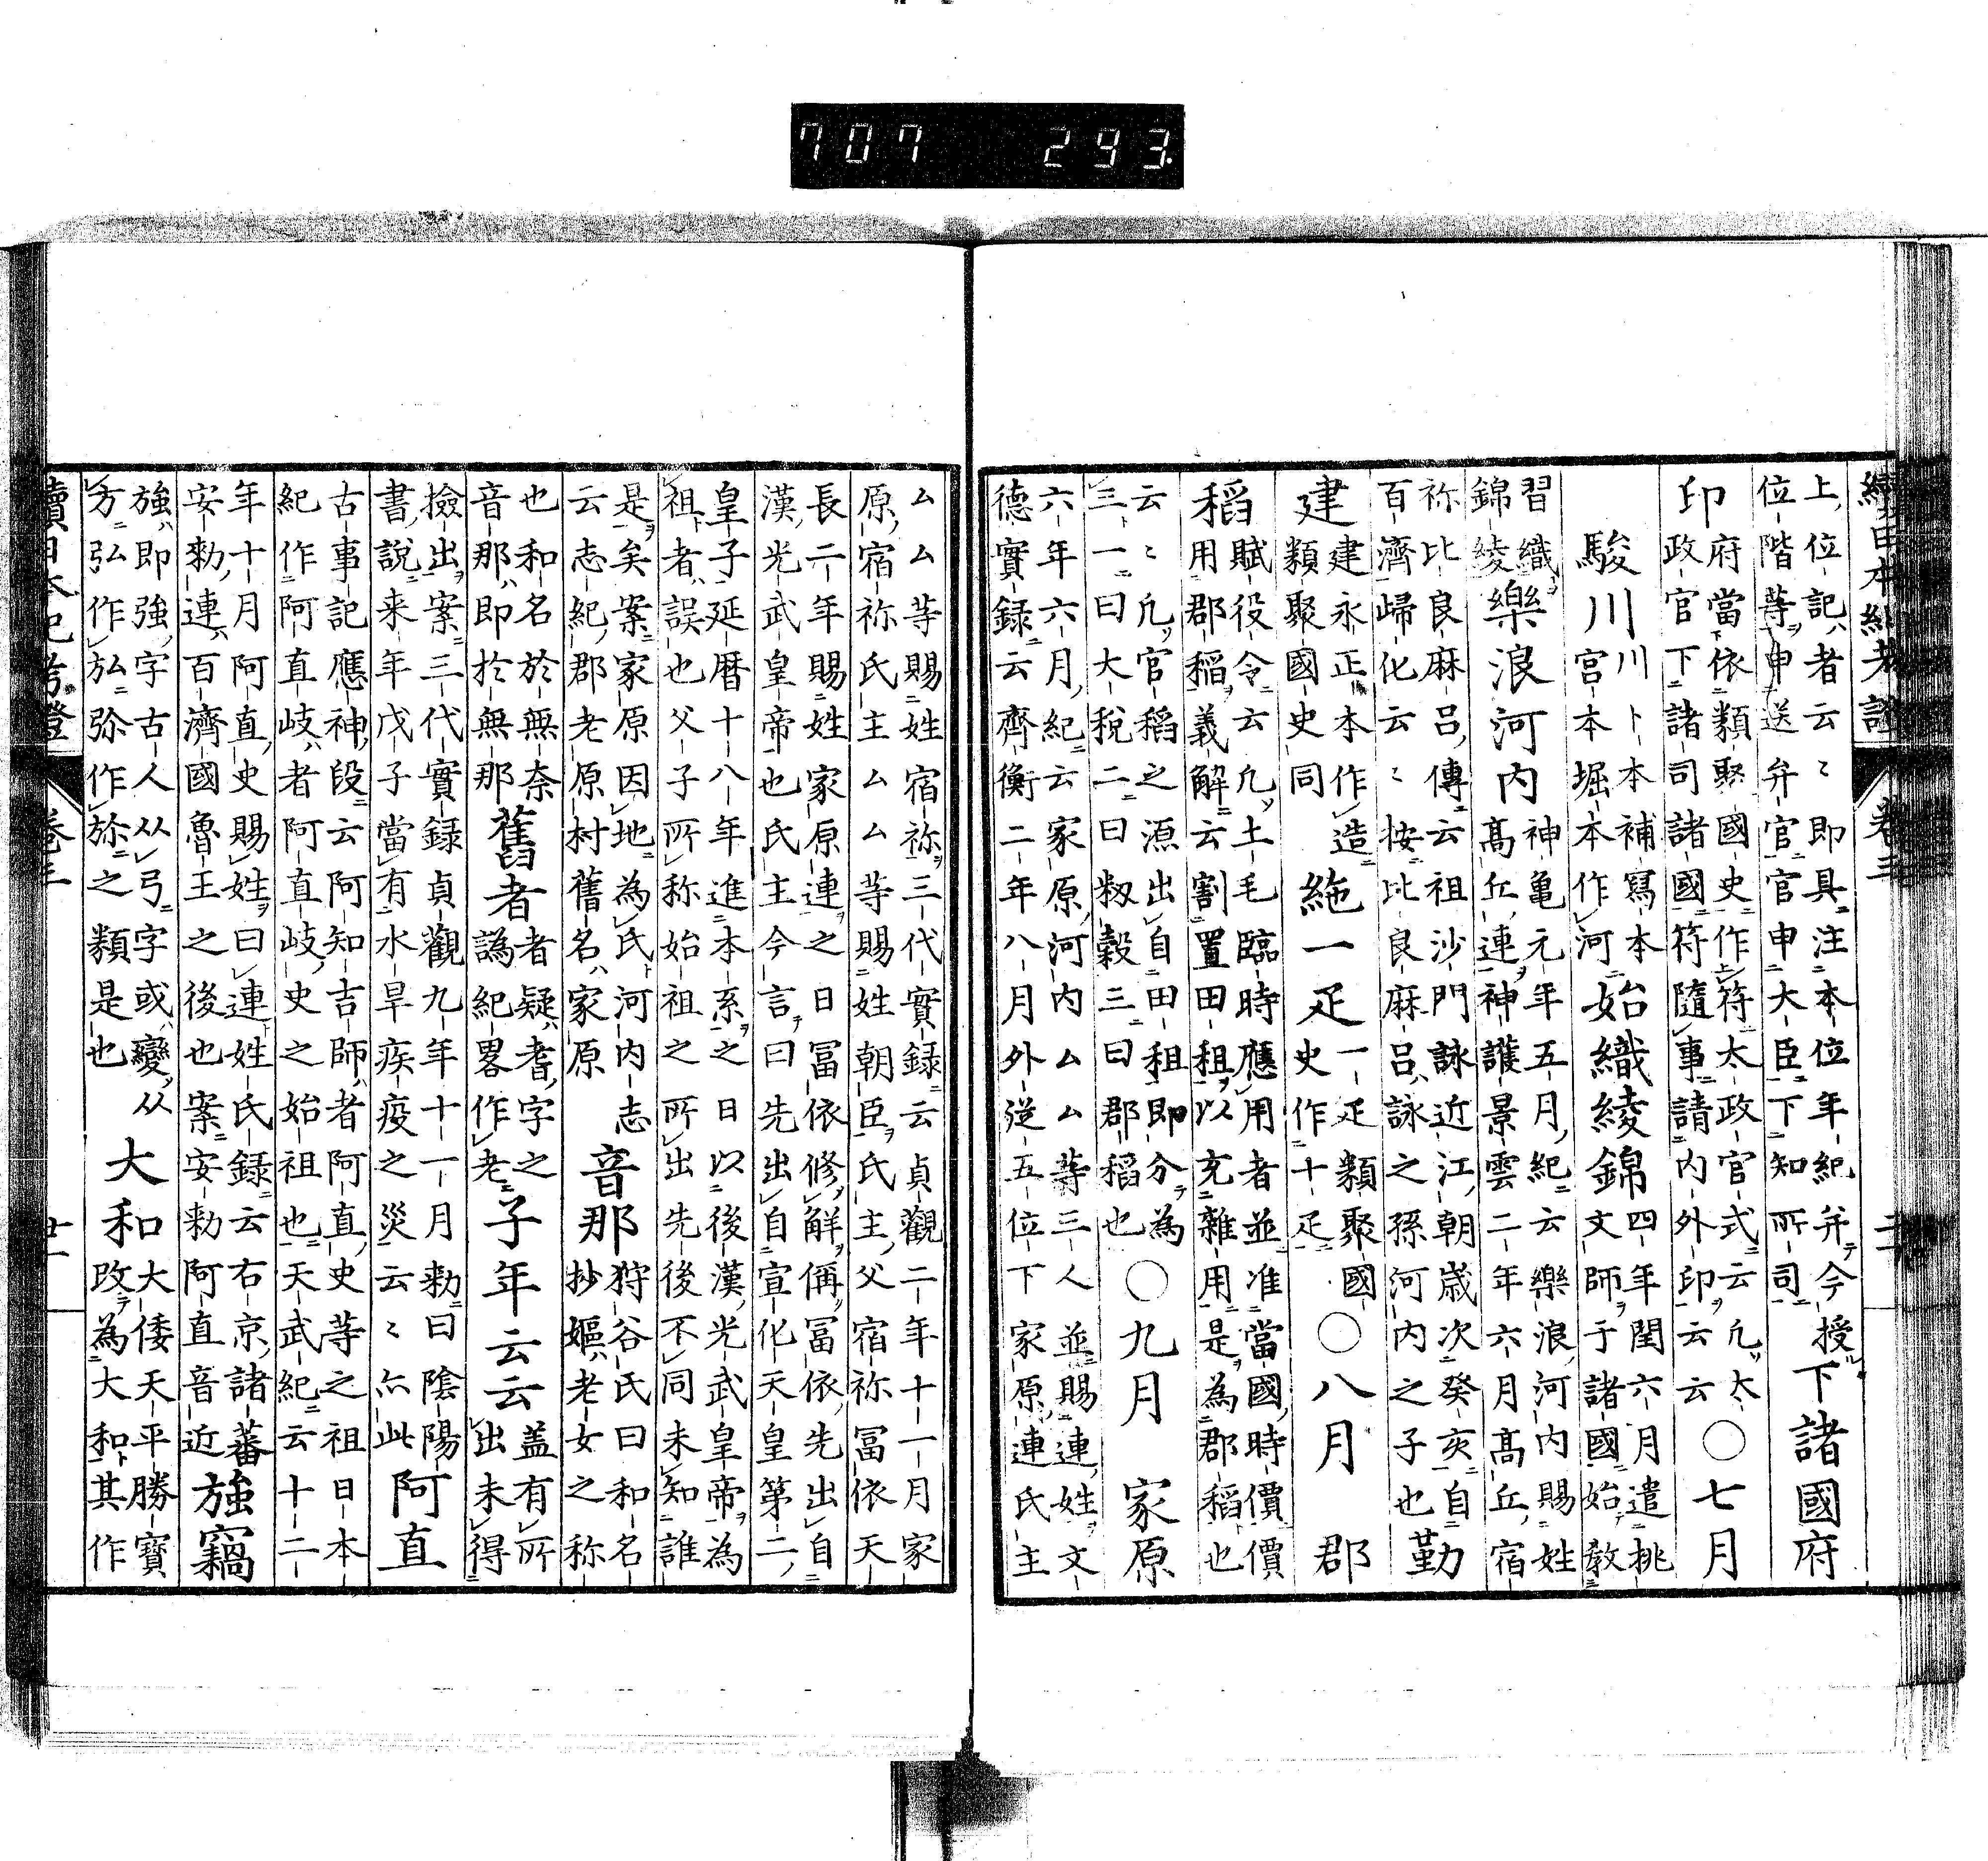 續日本紀考證 卷三
上位記者云〻即具注本位年紀弁今授
位階等申送弁官官申大臣下知所司
下諸國府
印
府當依類聚國史作符太政官式云凡太
政官下諸司諸國符隨事請内外印云云
○七月
駿川
川卜本補寫本
宮本堀本作河
始織綾錦
四年閏六月遣挑
文師于諸國始教
習織
錦綾
樂浪河内
神亀元年五月紀云樂浪河内賜姓
高丘連神護景雲二年六月高丘宿
祢比良麻呂傳云祖沙門詠近江朝歳次癸亥自
百濟歸化云〻按比良麻呂詠之孫河内之子也
勤
建
建永正本作造
類聚國史同
絁一疋
一疋類聚國
史作十疋
○八月 郡
稻
賦役令云凡土毛臨時應用者並准當國時價價
用郡稻義解云割置田租以充雜用是為郡稻也
云〻凡官稻之源出自田租即分為
三一曰大税二曰籾穀三曰郡稻也
○九月 家原
六年六月紀云家原河内ムム等三人並賜連姓文
德實録云齊衡二年八月外従五位下家原連氏主
ムム等賜姓宿祢三代實録云貞觀二年十一月家
原宿祢氏主ムム等賜姓朝臣氏主父宿祢冨依天
長二年賜姓家原連之日冨依修解偁冨依先出自
漢光武皇帝也氏主今言曰先出自宣化天皇第二
皇子延暦十八年進本系之日以後漢光武皇帝為
祖者誤也父子所称始祖之所出先後不同未知誰
是矣案家原因地為氏河内志
云志紀郡老原村舊名家原
音那
狩谷氏曰和名
抄嫗老女之称
也和名於無奈
音那即於無那
舊者
者疑耆字之
譌紀畧作老
子年云云
盖有所
出未得
撿出案三代實録貞觀九年十一月勅曰陰陽
書説来年戊子當有水旱疾疫之災云〻亦此
阿直
古事記應神段云阿知吉師者阿直史等之祖日本
紀作阿直岐者阿直岐史之始祖也天武紀云十二
年十月阿直史賜姓曰連姓氏録云右京諸蕃
安勅連百濟國魯王之後也案安勅阿直音近
㫋竊
㫋即強字古人从弓字或變从
方弘作㫐弥作㫆之類是也
大和
大倭天平勝寶
改為大和其作
續日本紀考證 卷三 廿一
707 293